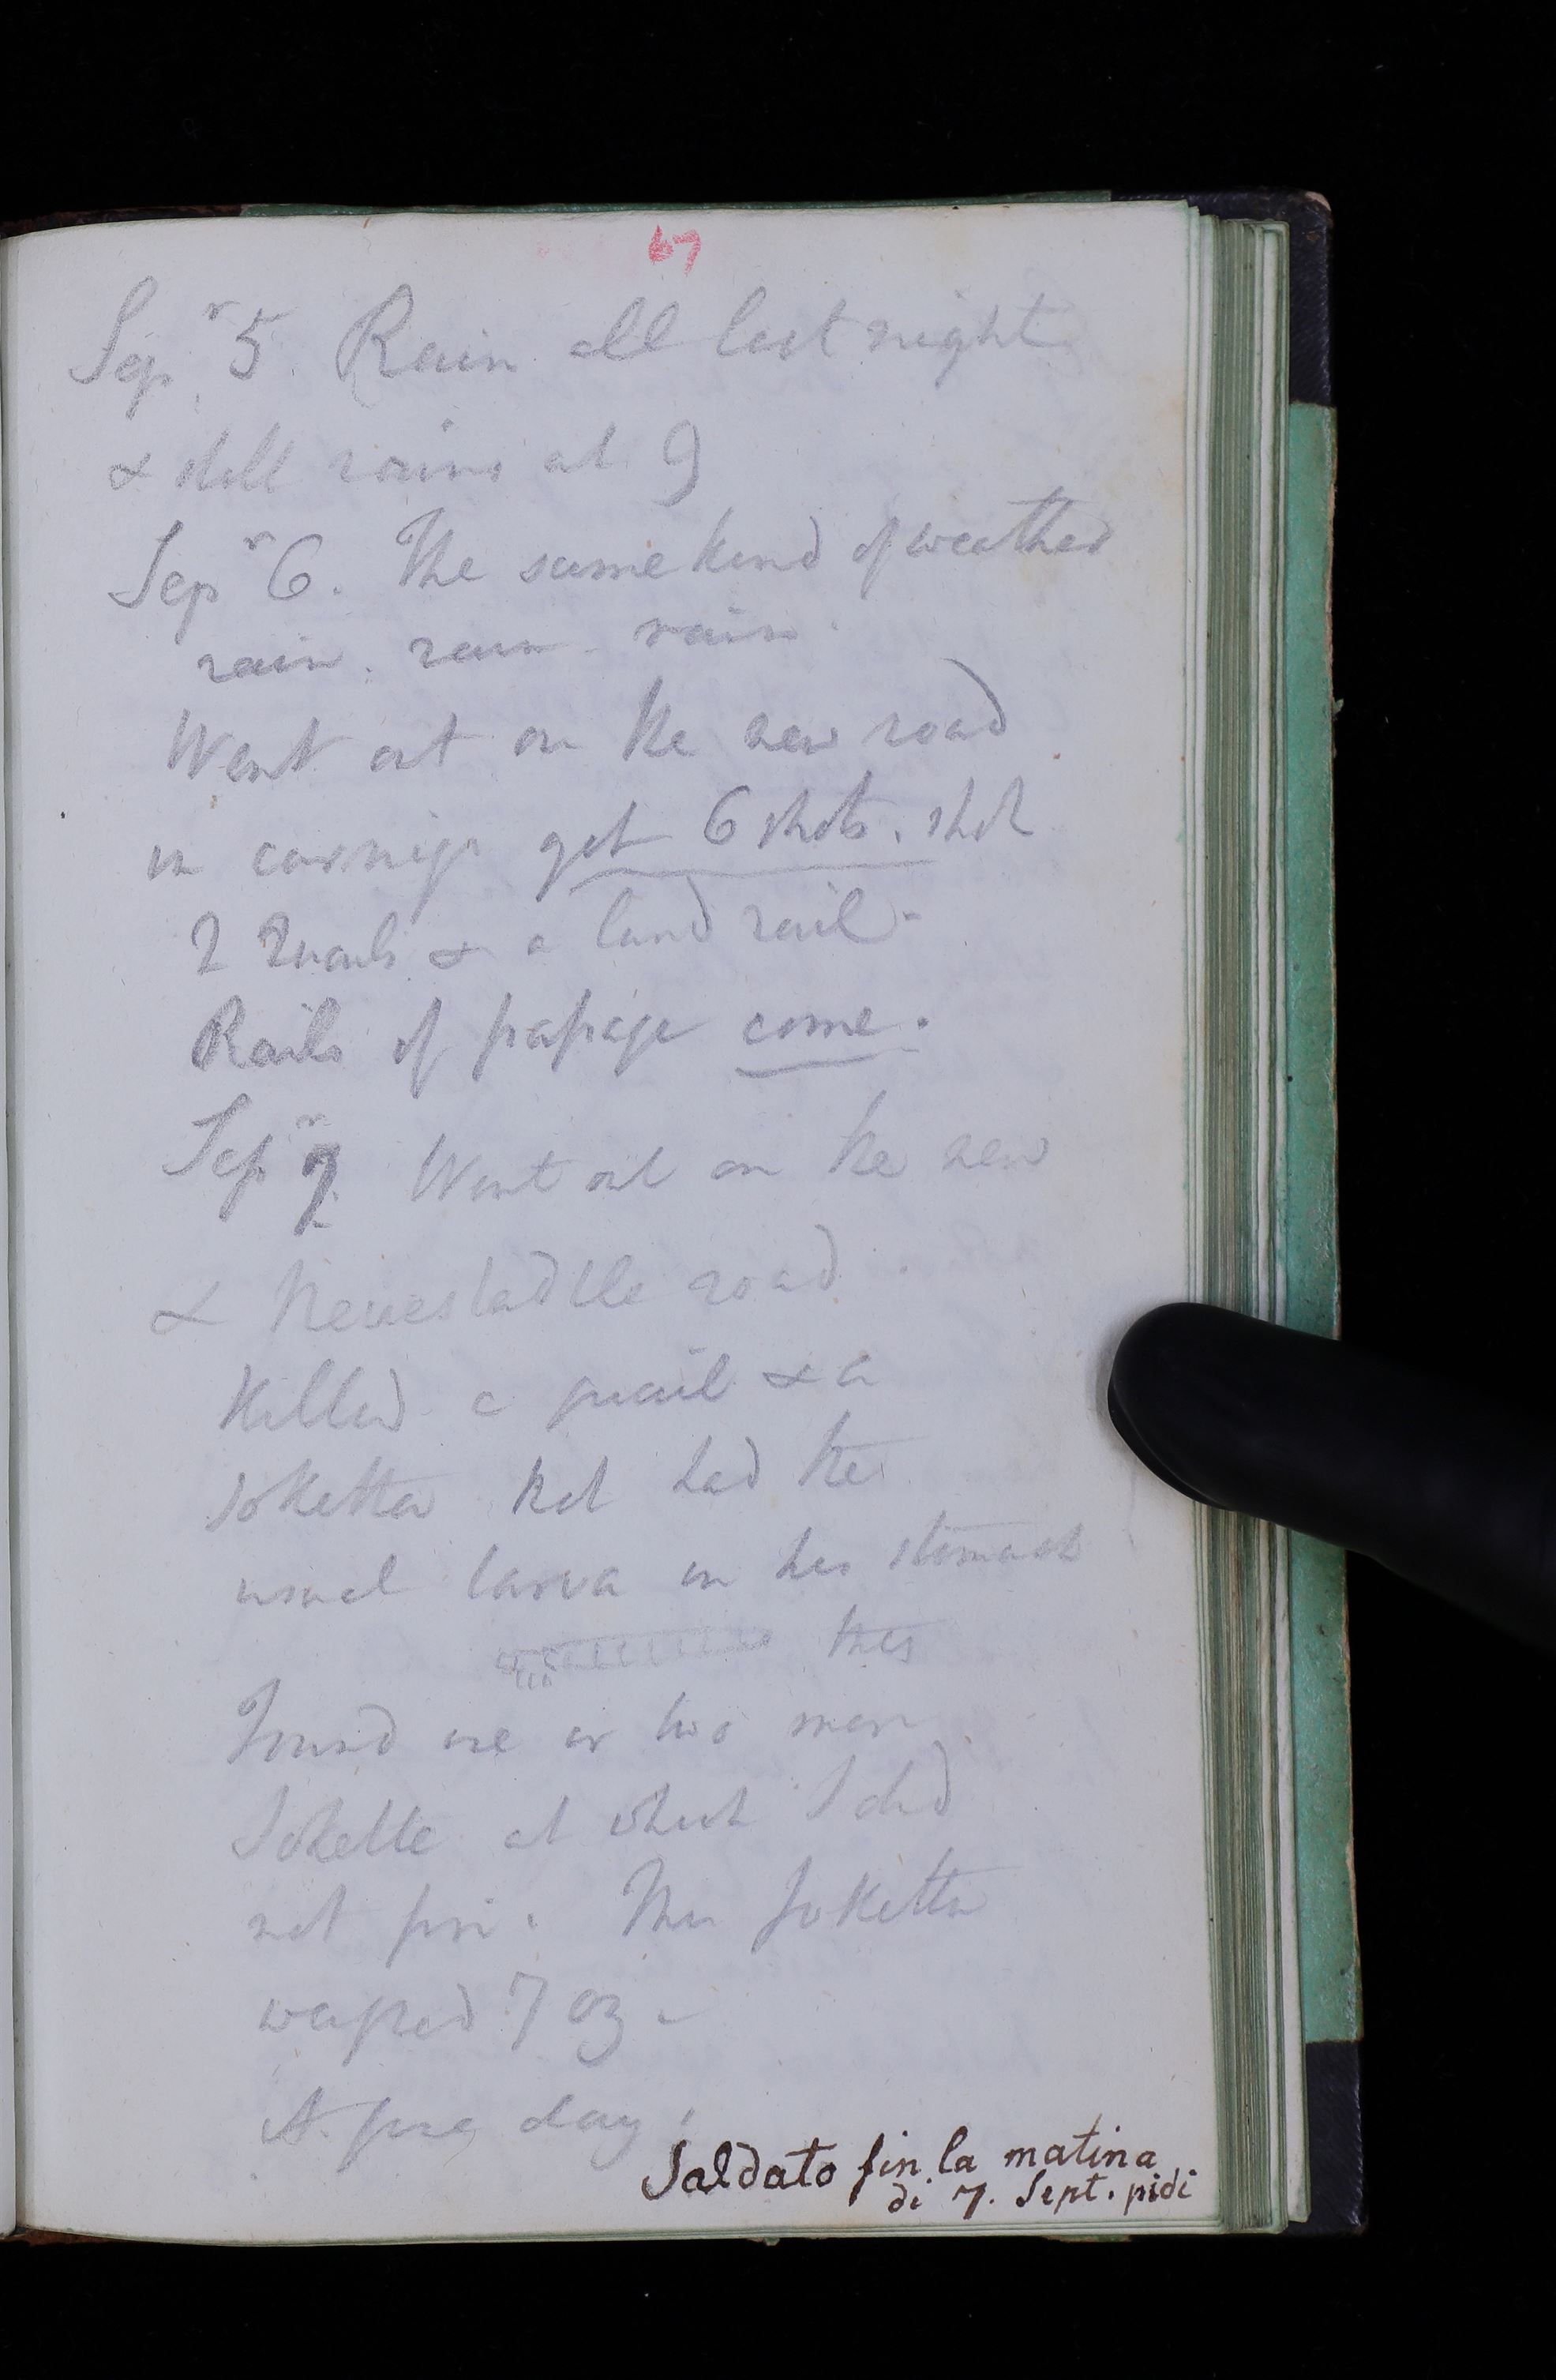 67
Sepr 5. Rain all last night
& still rains at 9
Sepr 6. The same kind of weather
rain. rain. rain.
Went out on the new road
in carriage got 6 shots. shot
2 Quails & a land rail -
Rails of passage come.
Sepr 7. Went out on the new
& Neustadtle road.
Killed a quail & a
that had the
usual larva in her stomach
this
Found one or two more
at which I did
not fire. The
weighed 7 oz -
A fine day.
Saldato fin la matina
di 7. Sept. pidi